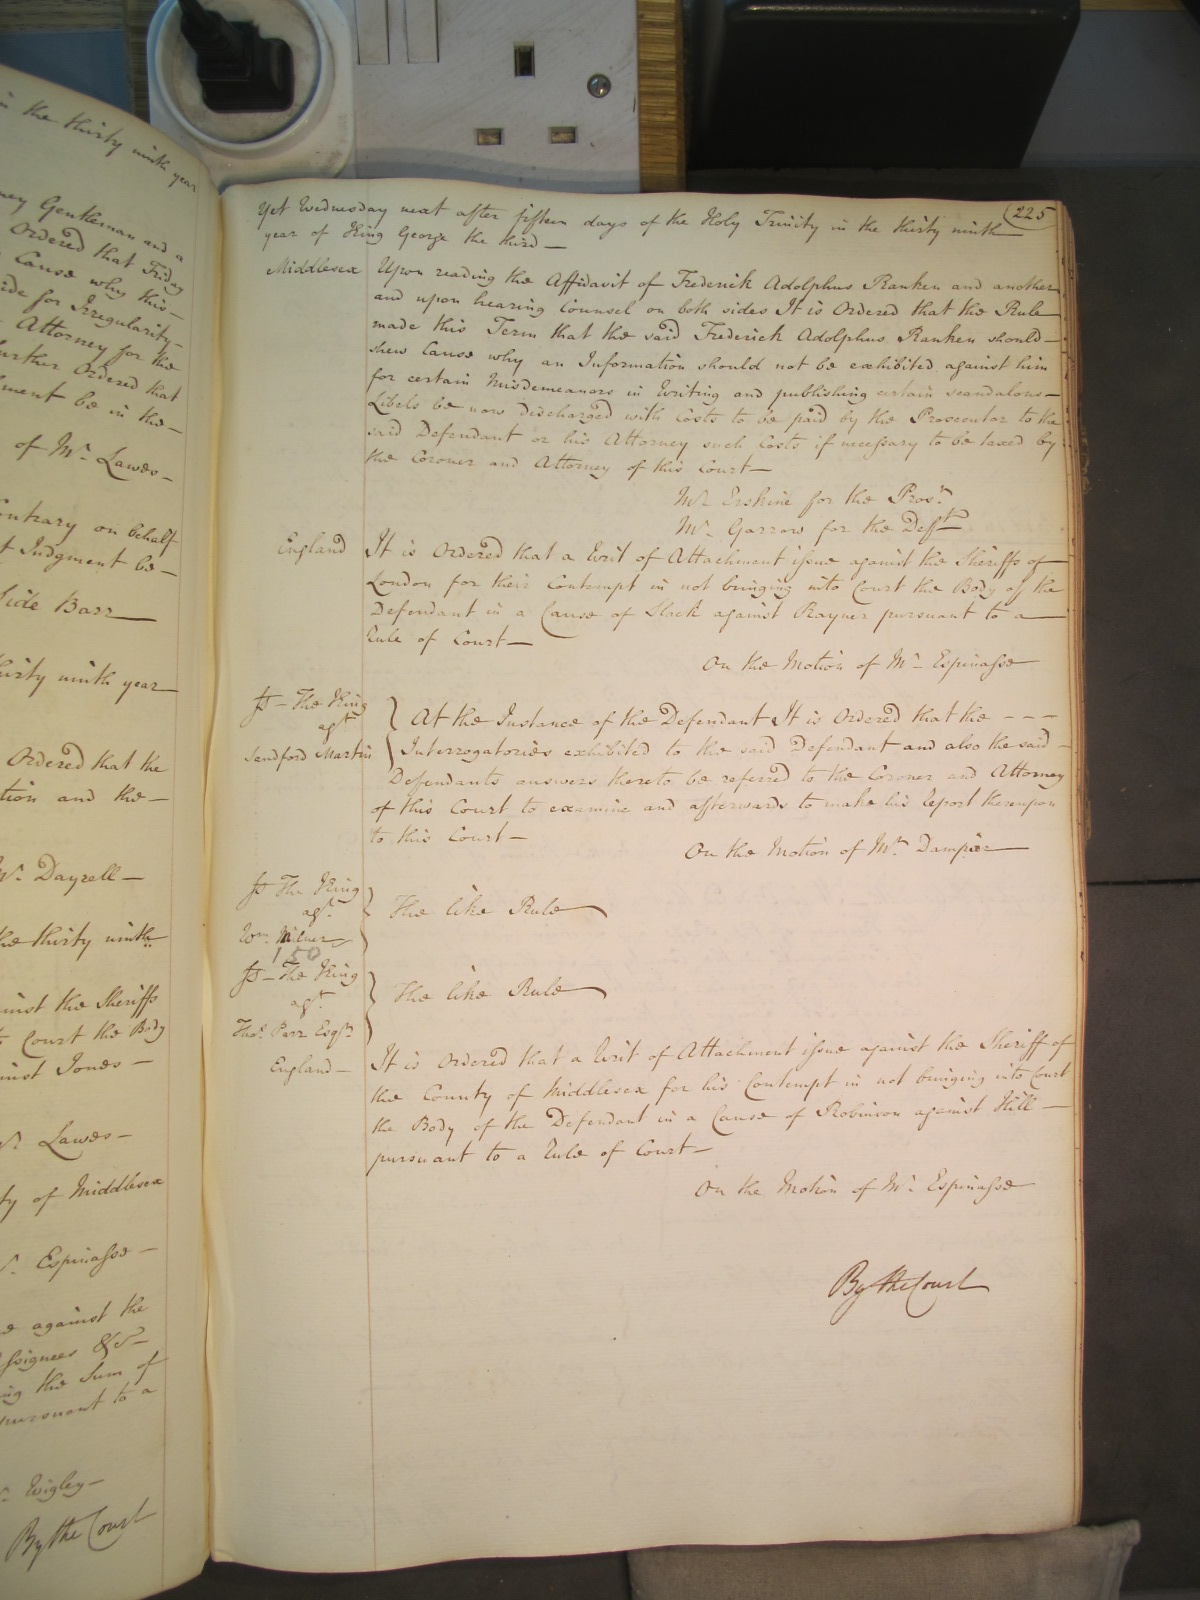 in the thirty ninth year
ney Gentleman and a
Ordered that Friday
Cause why this —
ide for Irregularity —
Attorney for the
further Ordered that
ment be in the —
of Mr. Lawes —
ontrary on behalf
t Judgment be —
Side Barr
hirty ninth year
Ordered that the
tion and the —
Mr. Dayrell —
the thirty ninth
inst the Sheriffs
Court the Body
inst Jones —
Mr. Lawes —
ty of Middlesex
Mr. Espinasse —
e against the
ssignees &c —
ing the Sum of
pursuant to a
Mr. Wigley —
By the Court
225
Yet Wednesday next after fifteen days of the Holy Trinity in the thirty ninth
year of King George the third —
Middlesex Upon reading the Affidavit of Frederick Adolphus Ranken and another
and upon hearing Counsel on both sides It is Ordered that the Rule
made this Term that the said Frederick Adolphus Ranken should —
shew Cause why an Information should not be exhibited against him
for certain Misdemeanors in Writing and publishing certain scandalous —
Libels be now discharged with Costs to be paid by the Prosecutor to the
said Defendant or his Attorney such Costs if necessary to be taxed by
the Coroner and Attorney of this Court —
Mr. Erskine for the Prosr.
Mr. Garrow for the Defft.
England It is Ordered that a Writ of Attachment issue against the Sheriffs of
London for their Contempt in not bringing into Court the Body of the
Defendant in a Cause of Slack against Rayner pursuant to a —
Rule of Court —
On the Motion of Mr. Espinasse
Js — The King
agt.
Sandford Martin
At the Instance of the Defendant It is Ordered that the - - -
Interrogatories exhibited to the said Defendant and also the said —
Defendants answers thereto be referred to the Coroner and Attorney
of this Court to examine and afterwards to make his Report thereupon
to this Court —
On the Motion of Mr. Dampier
Js The King
agt.
Wm. Milner
The like Rule
150
Js — The King
agt.
Thos. Parr Esqr.
The like Rule
England — It is Ordered that a Writ of Attachment issue against the Sheriff of
the County of Middlesex for his Contempt in not bringing into Court
the Body of the Defendant in a Cause of Robinson against Hill —
pursuant to a Rule of Court —
On the Motion of Mr. Espinasse
By the Court